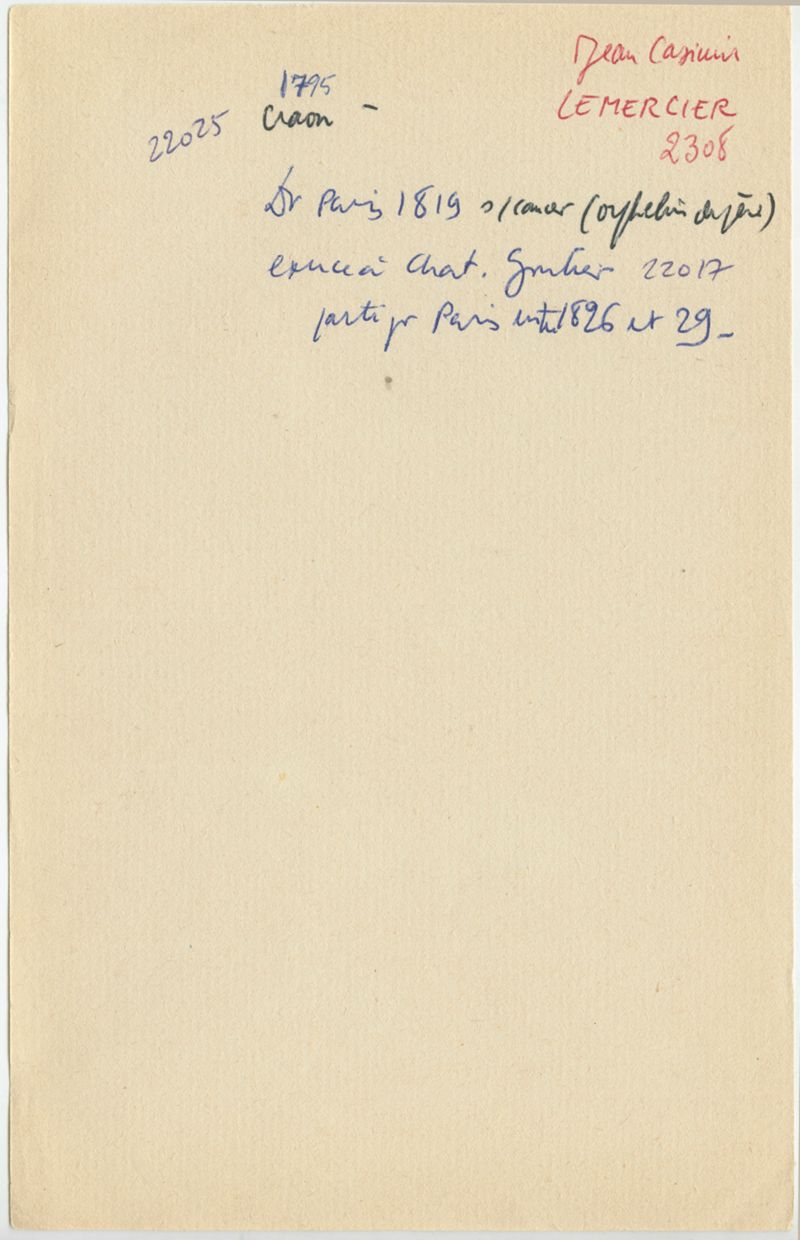 Jean Casimir
LEMERCIER
2308
1795
22025 Craon -
Dr Paris 1819 s/cancer (orphelin de père)
exerce à Chat. Gontier 22017
parti pr Paris entre 1826 et 29 -